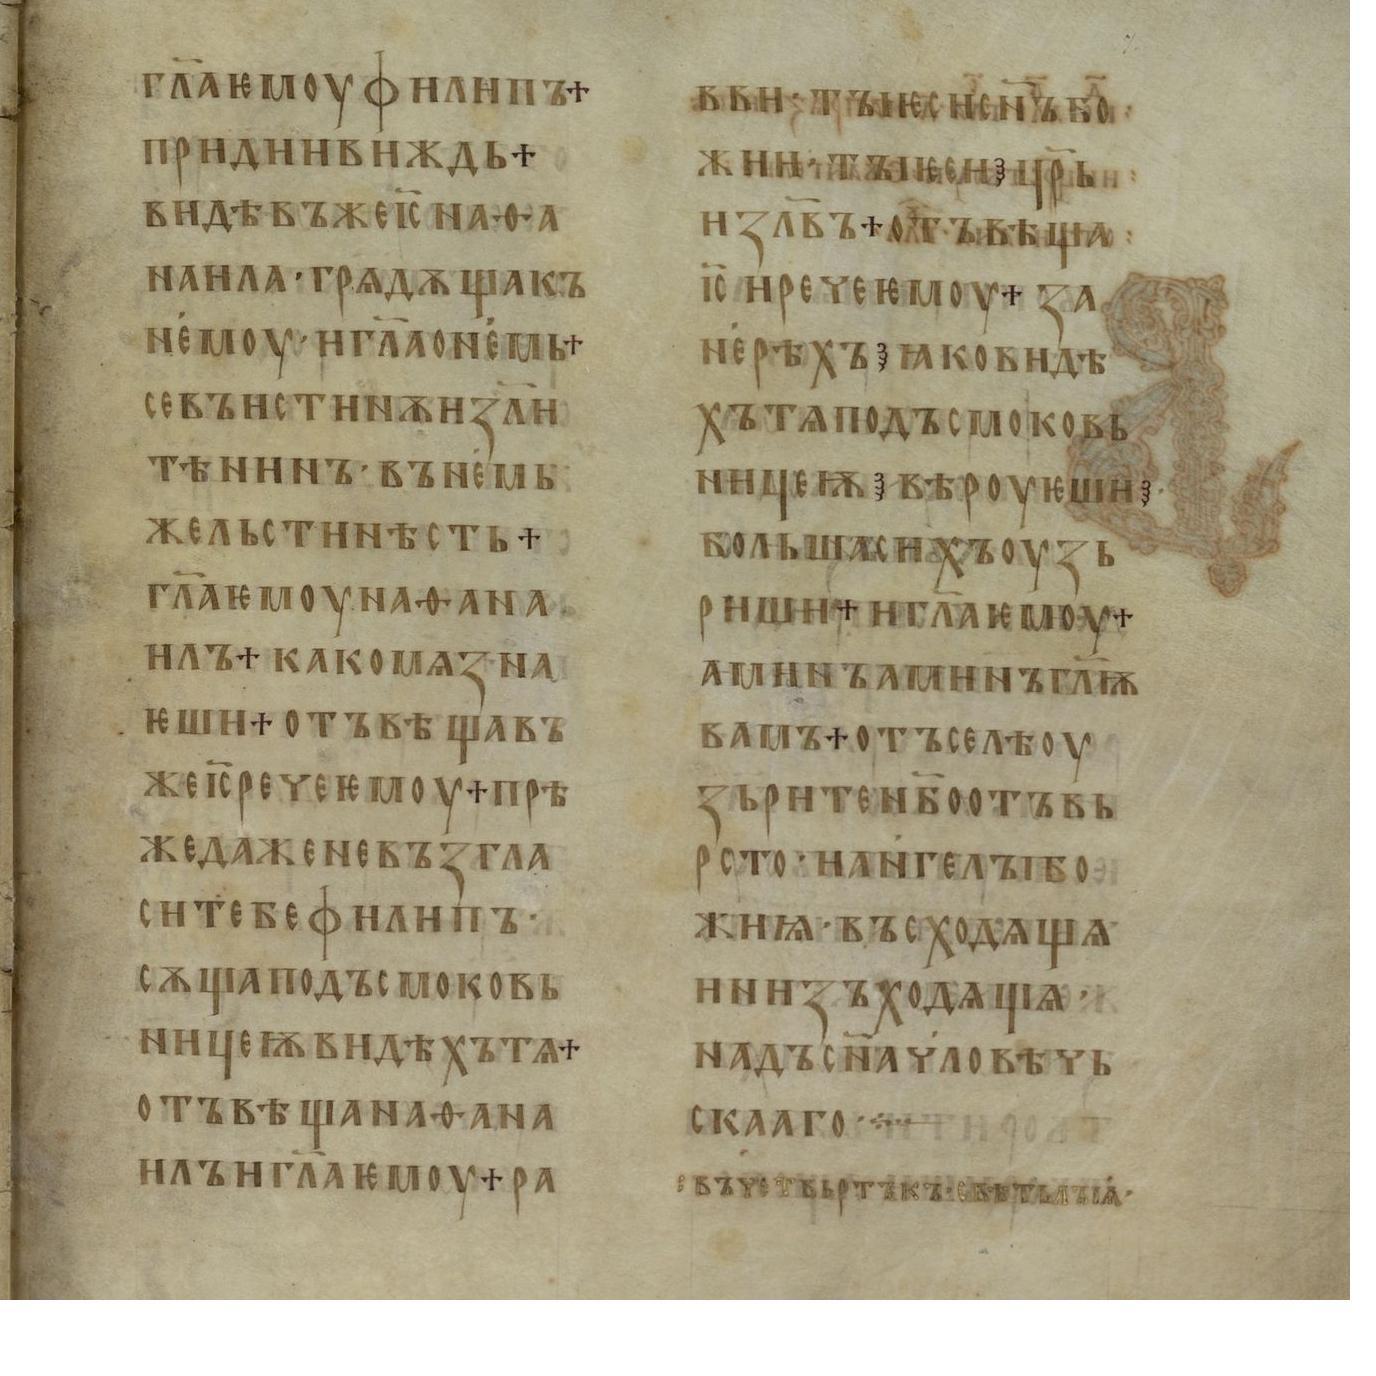 гл҃аѥмоуфилипъ+
придиивиждь+
видѣвъжеіс҃наѳа
наила·грядѫщакъ
не҅моу·игл҃аоне҅мь+
севъистинѫизл҃и
тѣнинъ·въне҅мь
жельстинѣсть+
гл҃аѥмоунаѳана
илъ+какомязна
ѥши+отъвѣщавъ
жеіс҃речеѥмоу+прѣ
жедаженевъзгла
ситебефилипъ·
сѫщаподъсмоковь
ницеѭвидѣхътя+
отъвѣщанаѳана
илъигл҃аѥмоу+ра
вви·тъıѥсисн҃ъбо
жии·тъıѥсиꙁцр҃ь
изл҃въ+отъвѣща
іс҃иречеѥмоу+за
не҅рѣхъꙁ ꙗковидѣ
хътяподъсмоковь
ницеѭꙁвѣроуѥшиꙁ·
большасихъоузь
риши+игл҃аѥмоу+
аминъаминъгл҃ѭ
вамъ+отъселѣоу
зьритенб҃оотъвь
рсто·иан҅гелъıбо
жиꙗ·въсходящя
иинзъходящꙗ·
надъсн҃ач҅ловѣчь
скааго·
въчетвьртъкъ·светълъıꙗ·